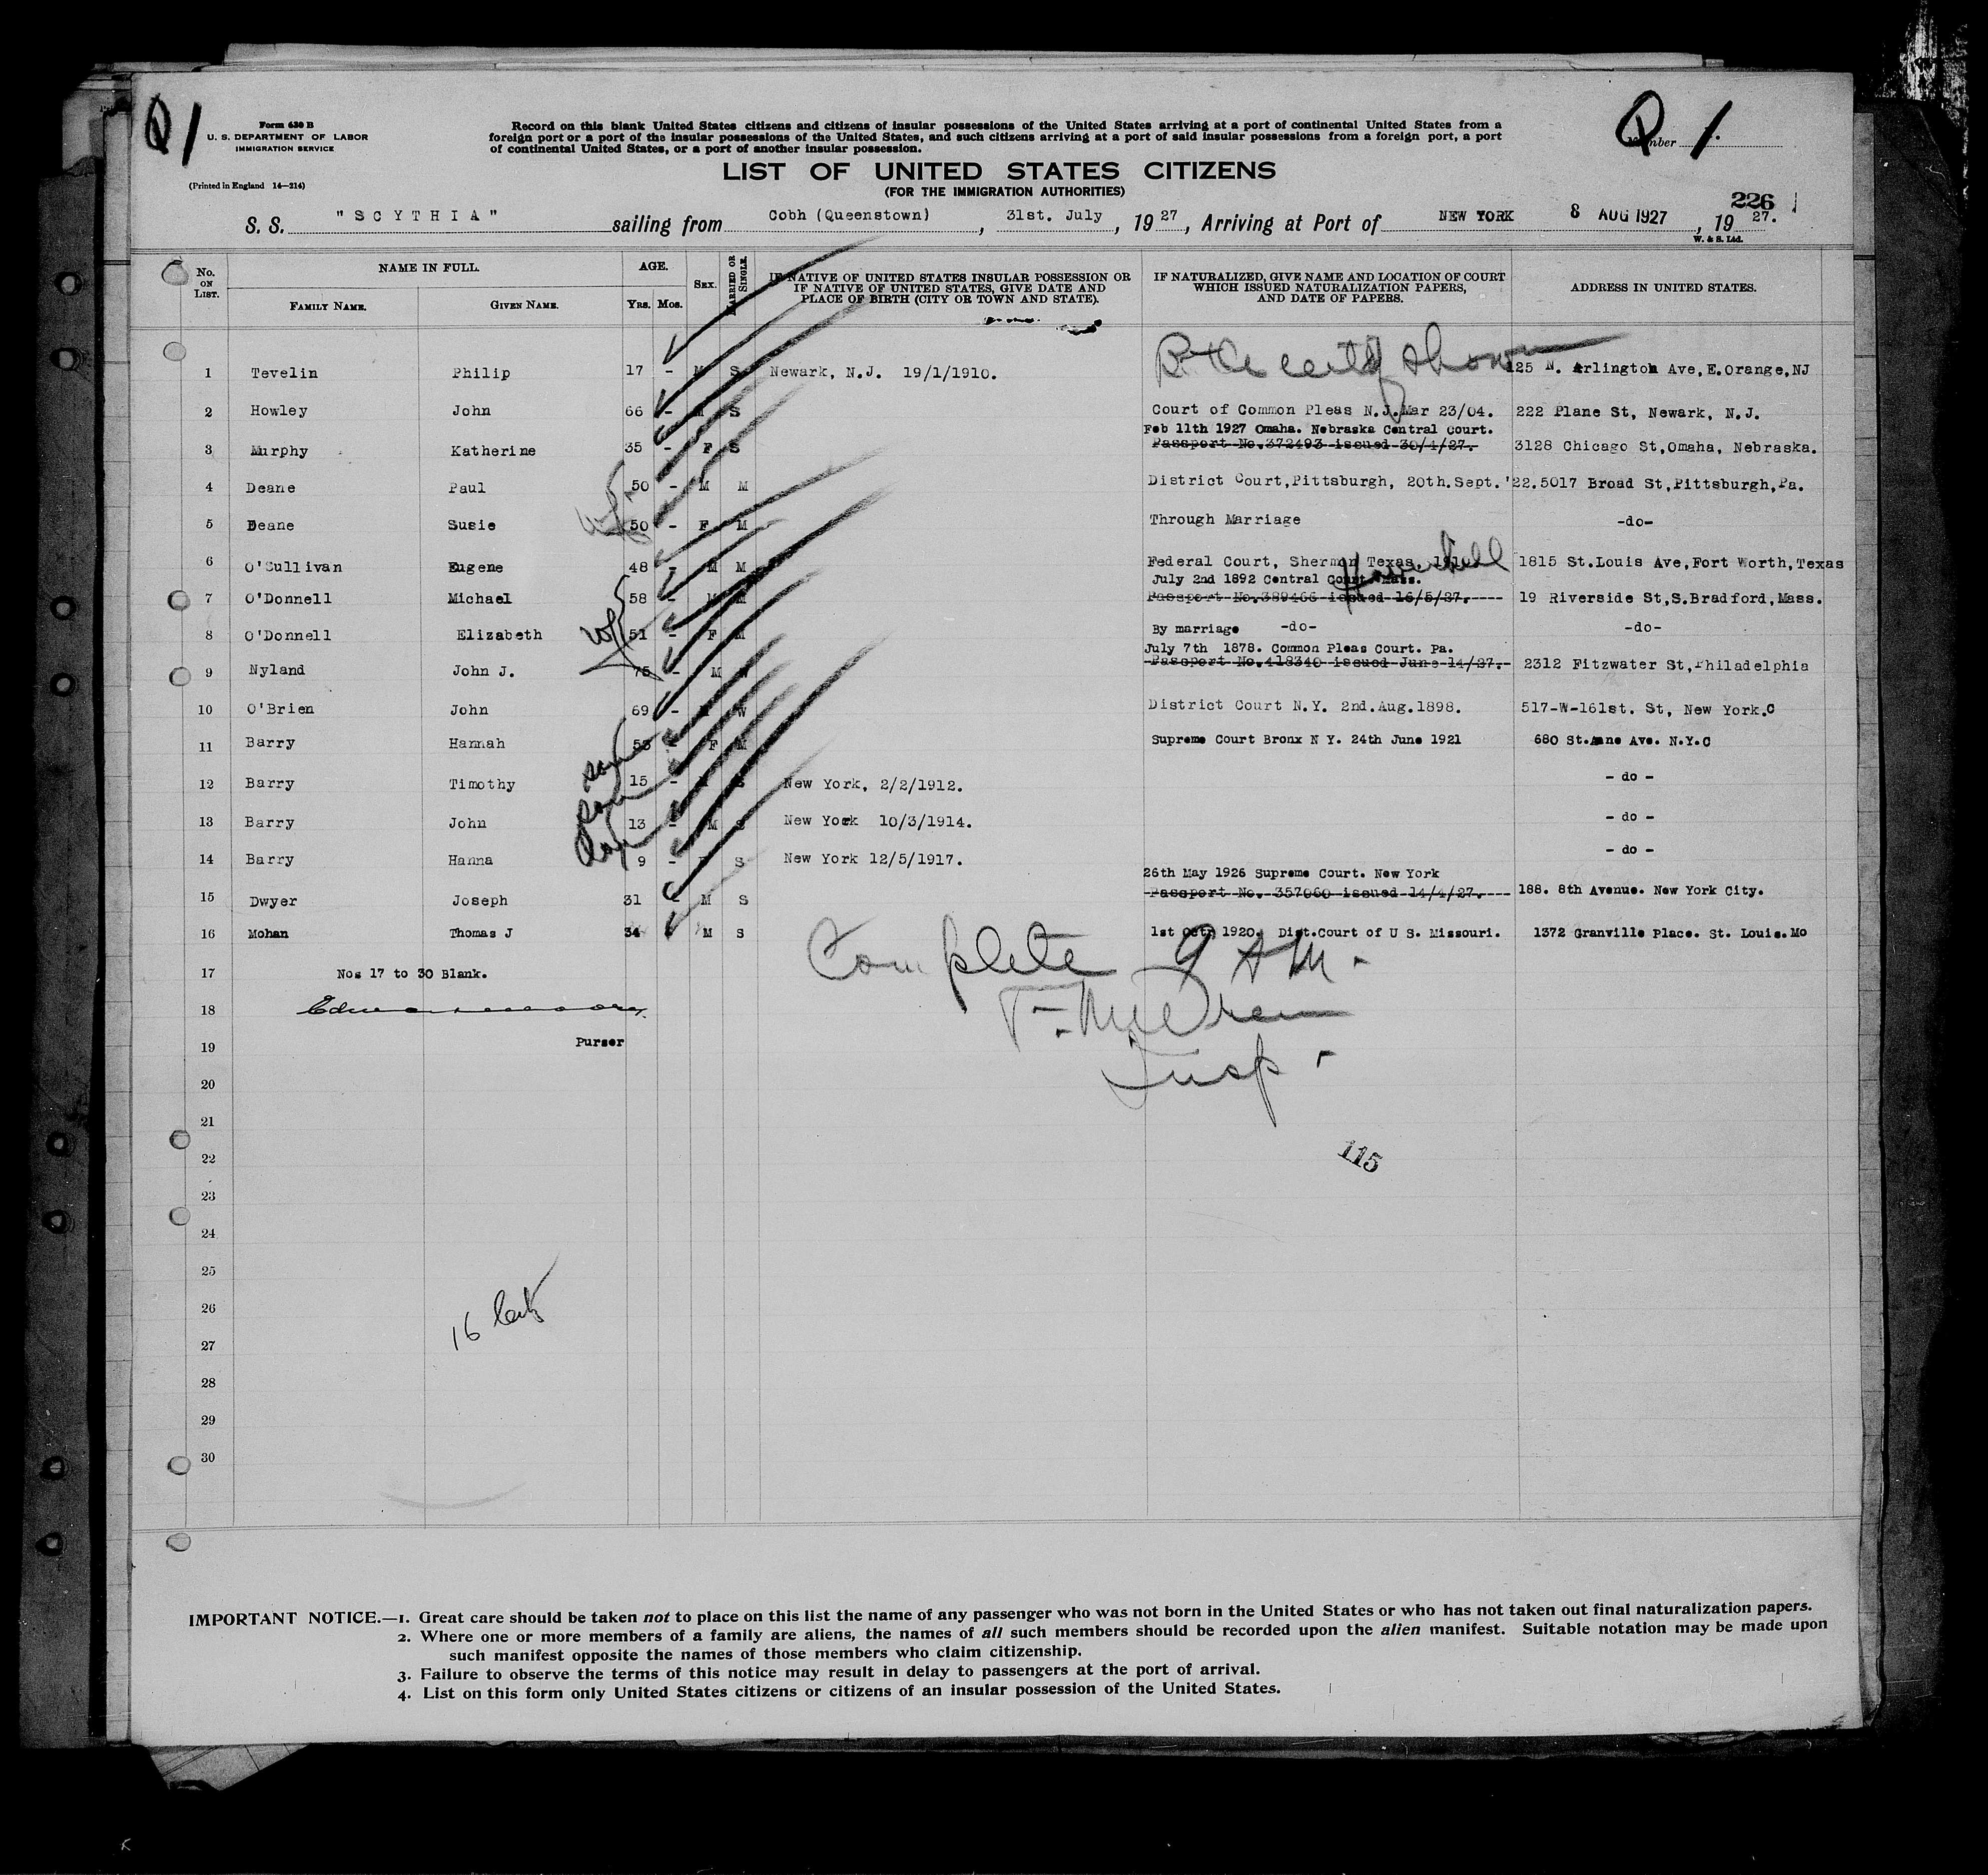 Q 1
Form 630 B
U. S. DEPARTMENT OF LABOR
IMMIGRATION SERVICE
(Printed in England 14—214)
Record on this blank United States citizens and citizens of insular possessions of the United States arriving at a port of continental United States from a
foreign port or a port of the insular possessions of the United States, and such citizens arriving at a port of said insular possessions from a foreign port, a port
of continental United States, or a port of another insular possession.
Q 1
Number
LIST OF UNITED STATES CITIZENS
(FOR THE IMMIGRATION AUTHORITIES)
226
S. S. "SCYTHIA" sailing from Cobh (Queenstown), 31st. July, 1927, Arriving at Port of NEW YORK 8 AUG 1927, 1927.
W. & S. Ltd.
No. ON LIST. NAME IN FULL. FAMILY NAME. GIVEN NAME. AGE. Yrs. Mos. SEX. MARRIED OR SINGLE. IF NATIVE OF UNITED STATES INSULAR POSSESSION OR IF NATIVE OF UNITED STATES, GIVE DATE AND PLACE OF BIRTH (CITY OR TOWN AND STATE). IF NATURALIZED, GIVE NAME AND LOCATION OF COURT WHICH ISSUED NATURALIZATION PAPERS, AND DATE OF PAPERS. ADDRESS IN UNITED STATES.
1 Tevelin Philip 17 - M S Newark, N.J. 19/1/1910. shown 125 N. Arlington Ave, E.Orange,NJ
2 Howley John 66 - M S Court of Common Pleas N.J.Mar 23/04. 222 Plane St, Newark, N.J.
Feb 11th 1927 Omaha. Nebraska Central Court.
3 Murphy Katherine 35 - F S Passport No.372493 issued 30/4/27. 3128 Chicago St,Omaha, Nebraska.
4 Deane Paul 50 - M M District Court,Pittsburgh, 20th.Sept.'22. 5017 Broad St,Pittsburgh,Pa.
5 Deane Susie 50 - F M Through Marriage -do-
6 O'Sullivan Eugene 48 - M M Federal Court, Sherman Texas, 1815 St.Louis Ave,Fort Worth,Texas
July 2nd 1892 Central Court. Mass. Haverhill
7 O'Donnell Michael 58 - M M Passport No.389466 issued 16/5/27. 19 Riverside St,S.Bradford,Mass.
8 O'Donnell Elizabeth 51 - F M By marriage -do- -do-
July 7th 1878. Common Pleas Court. Pa.
9 Nyland John J. 75 - M W Passport No.418340 issued June 14/27. 2312 Fitzwater St,Philadelphia
10 O'Brien John 69 - M W District Court N.Y. 2nd.Aug.1898. 517-W-161st. St, New York.C
11 Barry Hannah 53 - F M Supreme Court Bronx N Y. 24th June 1921 680 St.Anne Ave. N.Y.C
12 Barry Timothy 15 - S New York, 2/2/1912. - do -
13 Barry John 13 - M S New York 10/3/1914. - do -
14 Barry Hanna 9 - S New York 12/5/1917. - do -
26th May 1926 Supreme Court. New York
15 Dwyer Joseph 31 - M S Passport No. 357060 issued 14/4/27. 188. 8th Avenue. New York City.
16 Mohan Thomas J 34 M S 1st Oct. 1920. Dist.Court of U S. Missouri. 1372 Granville Place. St. Louis.Mo
Complete 9 AM.
17 Nos 17 to 30 Blank.
18
19 Purser
Insp.
20
21
115
22
23
24
25
26
16
27
28
29
30
IMPORTANT NOTICE.—1. Great care should be taken not to place on this list the name of any passenger who was not born in the United States or who has not taken out final naturalization papers.
2. Where one or more members of a family are aliens, the names of all such members should be recorded upon the alien manifest. Suitable notation may be made upon
such manifest opposite the names of those members who claim citizenship.
3. Failure to observe the terms of this notice may result in delay to passengers at the port of arrival.
4. List on this form only United States citizens or citizens of an insular possession of the United States.